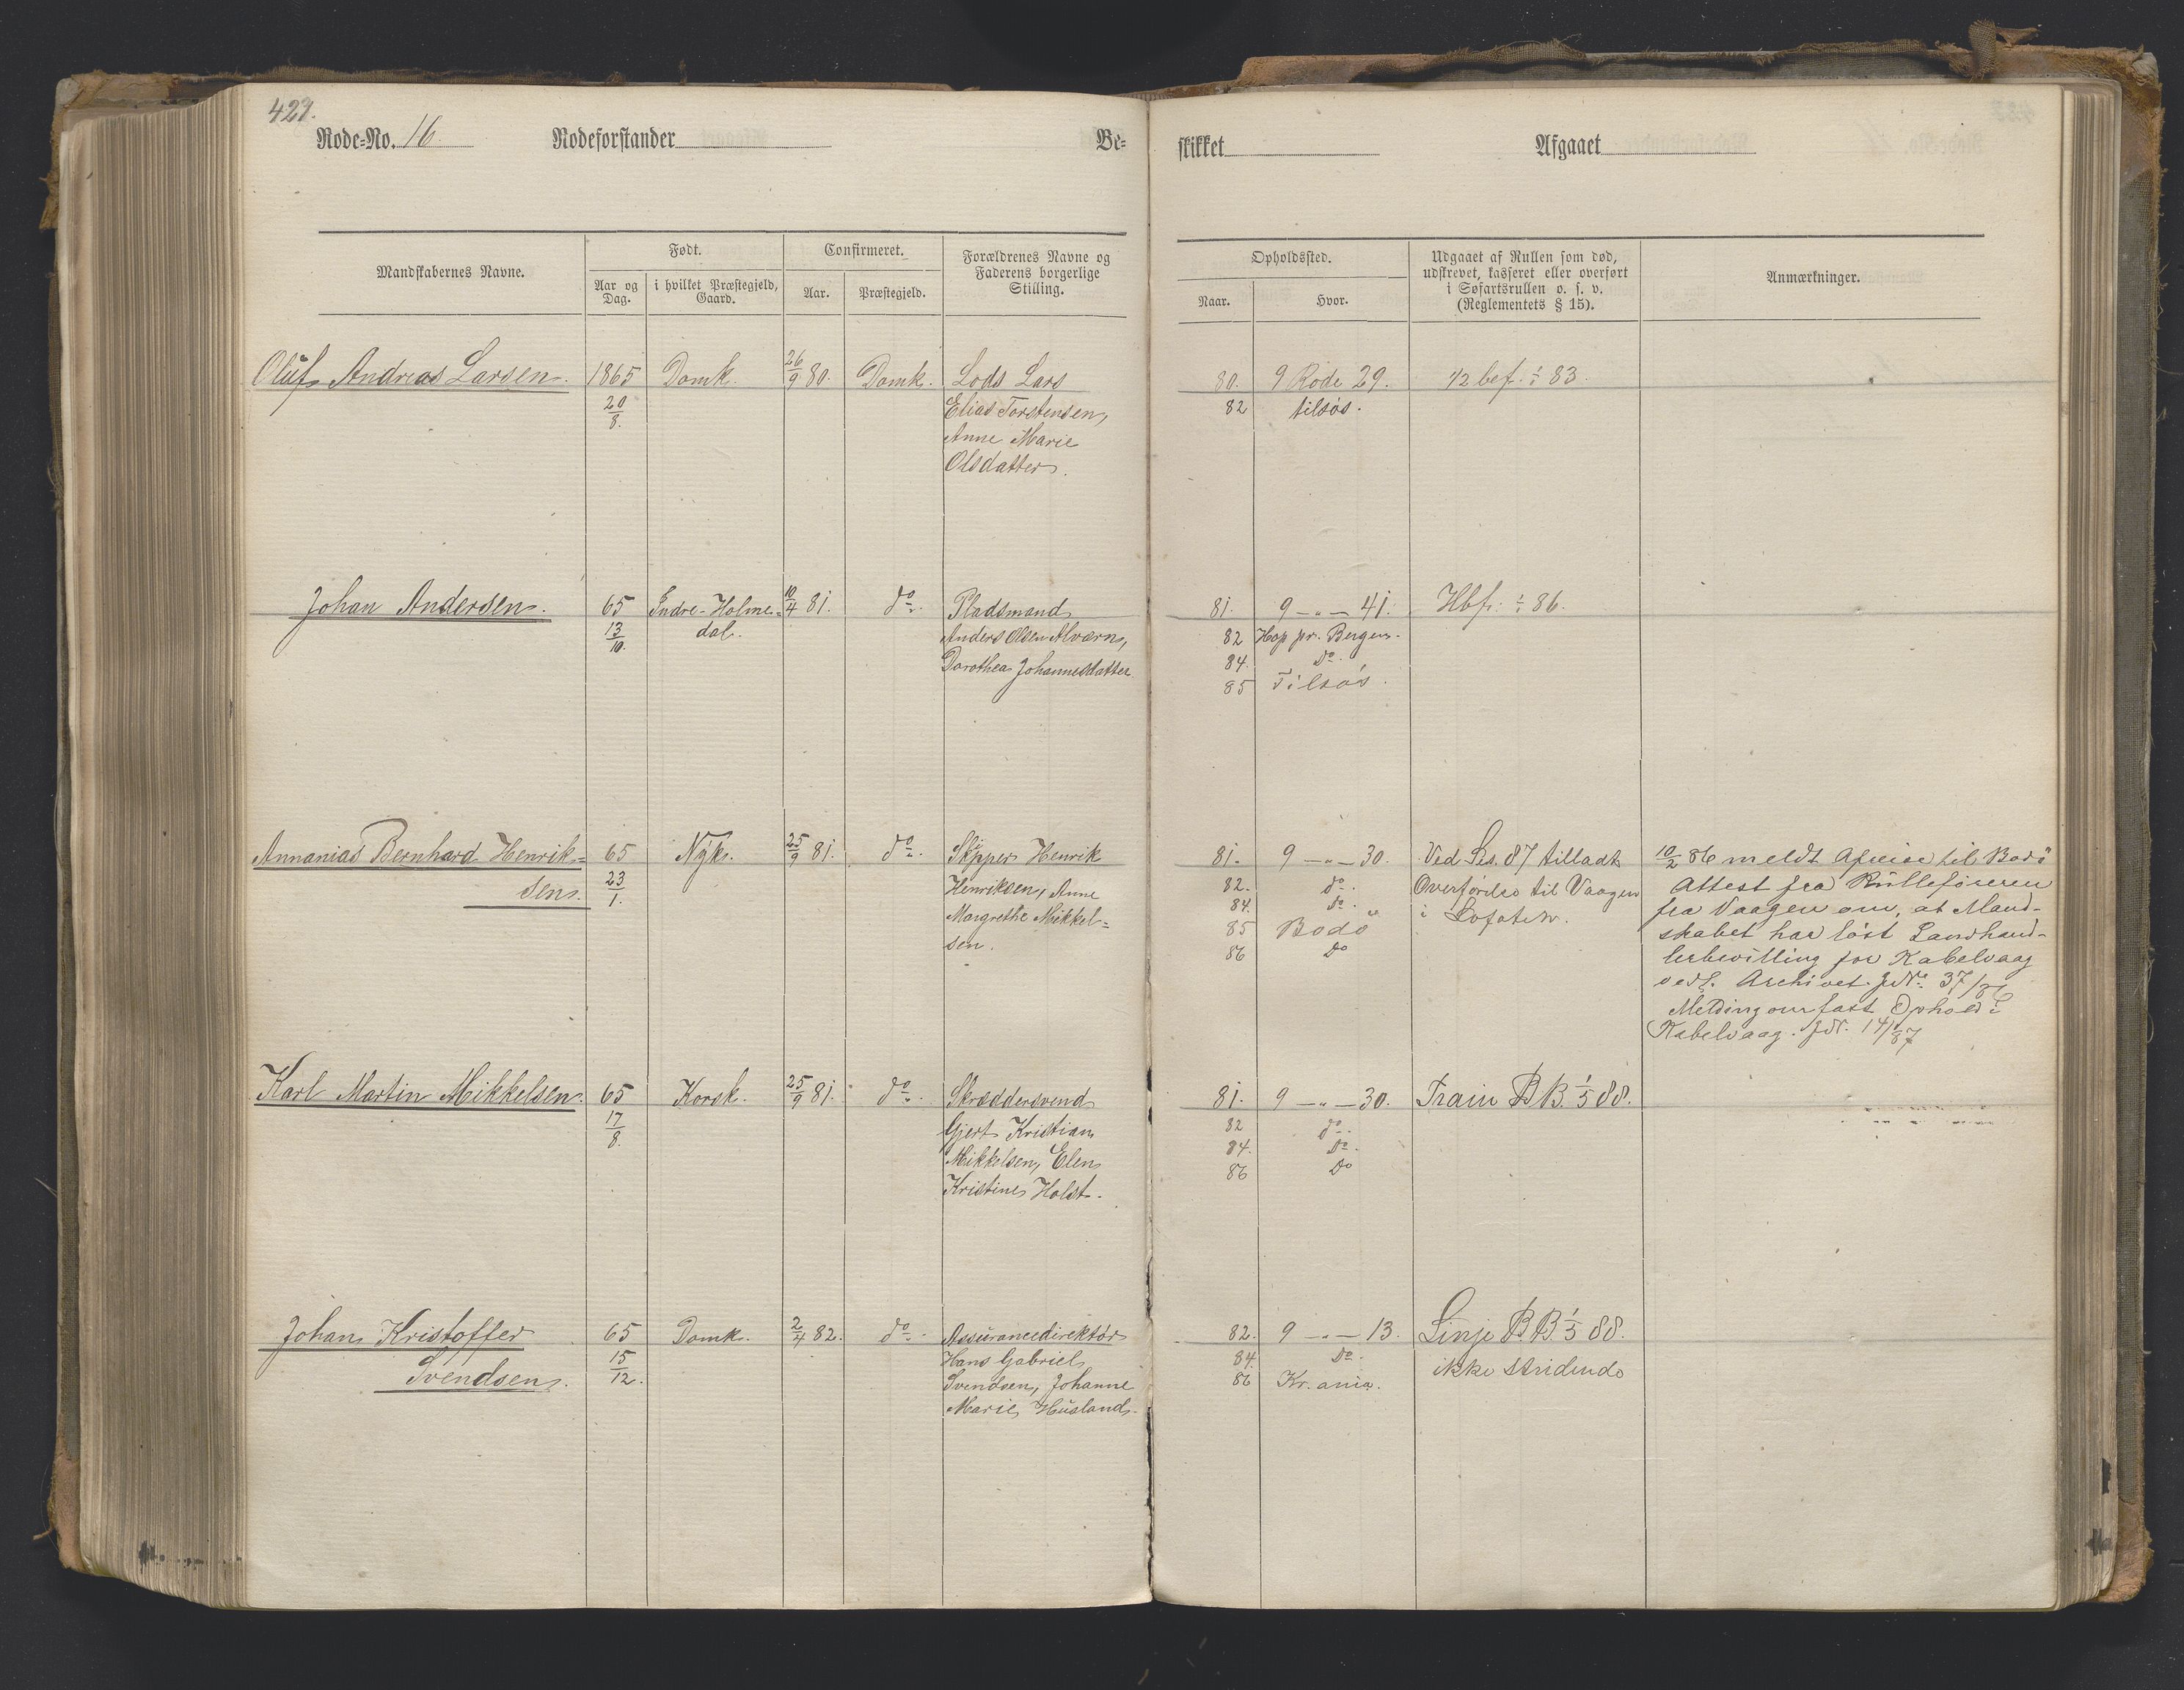 429.
Rode=No. 16. Rodeforstander Be=
Mandskabernes Navne. Født. Confirmeret. Forældrenes Navne og Faderens borgerlige Stilling.
Aar og Dag. i hvilket Præstegjeld, Gaard. Aar. Præstegjeld.
Oluf Andreas Larsen. 1865 Domk. 26/9 80. Domk. Lods Lars
20/8. Elias Torstensen,
Anne Marie
Olsdatter.
Johan Andersen. 65 Indre-Holme- 10/4 81. do. Pladsmand
13/10. dal. Anders Olsen Alværn,
Dorothea Johannesdatter
Annanias Bernhard Henrik= 65 Nyk. 25/9 81. do. Skipper Henrik
sen. 23/1. Henriksen, Anne
Margrethe Mikkel=
sen.
Karl Martin Mikkelsen. 65 Korsk. 25/9 81. do. Skræddersvend
17/8. Gjert Kristian
Mikkelsen, Elen
Kristine Holst.
Johan Kristoffer 65 Domk. 2/4 82. do. Assurancedirektør
Svendsen. 15/12. Hans Gabriel
Svendsen, Johanne
Marie Husland.
skikket Afgaaet
Opholdssted. Udgaaet af Rullen som død, udskrevet, kasseret eller overført i Søfartsrullen o. s. v. (Reglementets § 15). Anmærkninger.
Naar. Hvor.
80. 9 Rode 29. 1/2 bef. 83.
82 tilsøs.
81. 9 — „ — 41. Hbf. 86.
82 Hop pr. Bergen.
84. Do.
85 Tilsøs.
81. 9 — „ — 30. Ved Ses. 87 tilladt 10/2 86 meldt Afreise til Bodø
82. do. Overførelse til Vaagen Attest fra Rulleføreren
84. Do. i Lofoten. fra Vaagen om, at Mand-
85 Bodø skabet har løst Landhand-
86 Do lerbevilling for Kabelvaag
vedl. Archivet. JNo. 37/86
Melding om fast Ophold i
Kabelvaag. JN. 141/87
81. 9 — „ — 30. Train B.B. 1/5 88.
82 do.
84. Do.
86 Do
82. 9 — „ — 13. Linje B.B. 1/5 88.
84. Do. ikke stridende
86 Kr.ania.